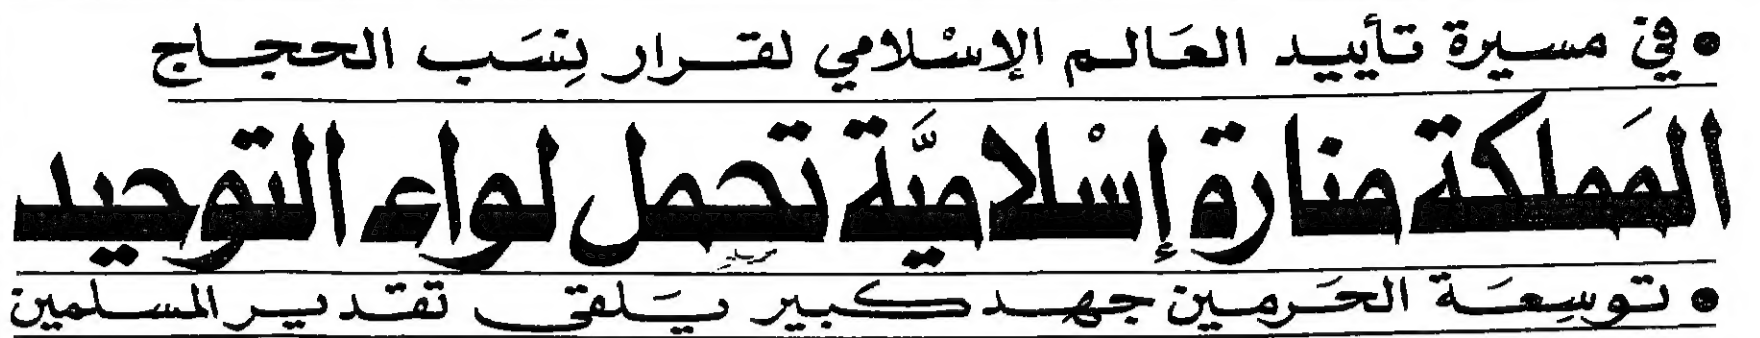 • في مسيرة تأييد العَالم الإسْلامي لقرار نِسَب الحجاج
المَملكة منارة إسْلاميَّة تحمل لواء التوحيد
• توسِعَة الحَرمين جهد كبير يَلقى تقدير المسلمين